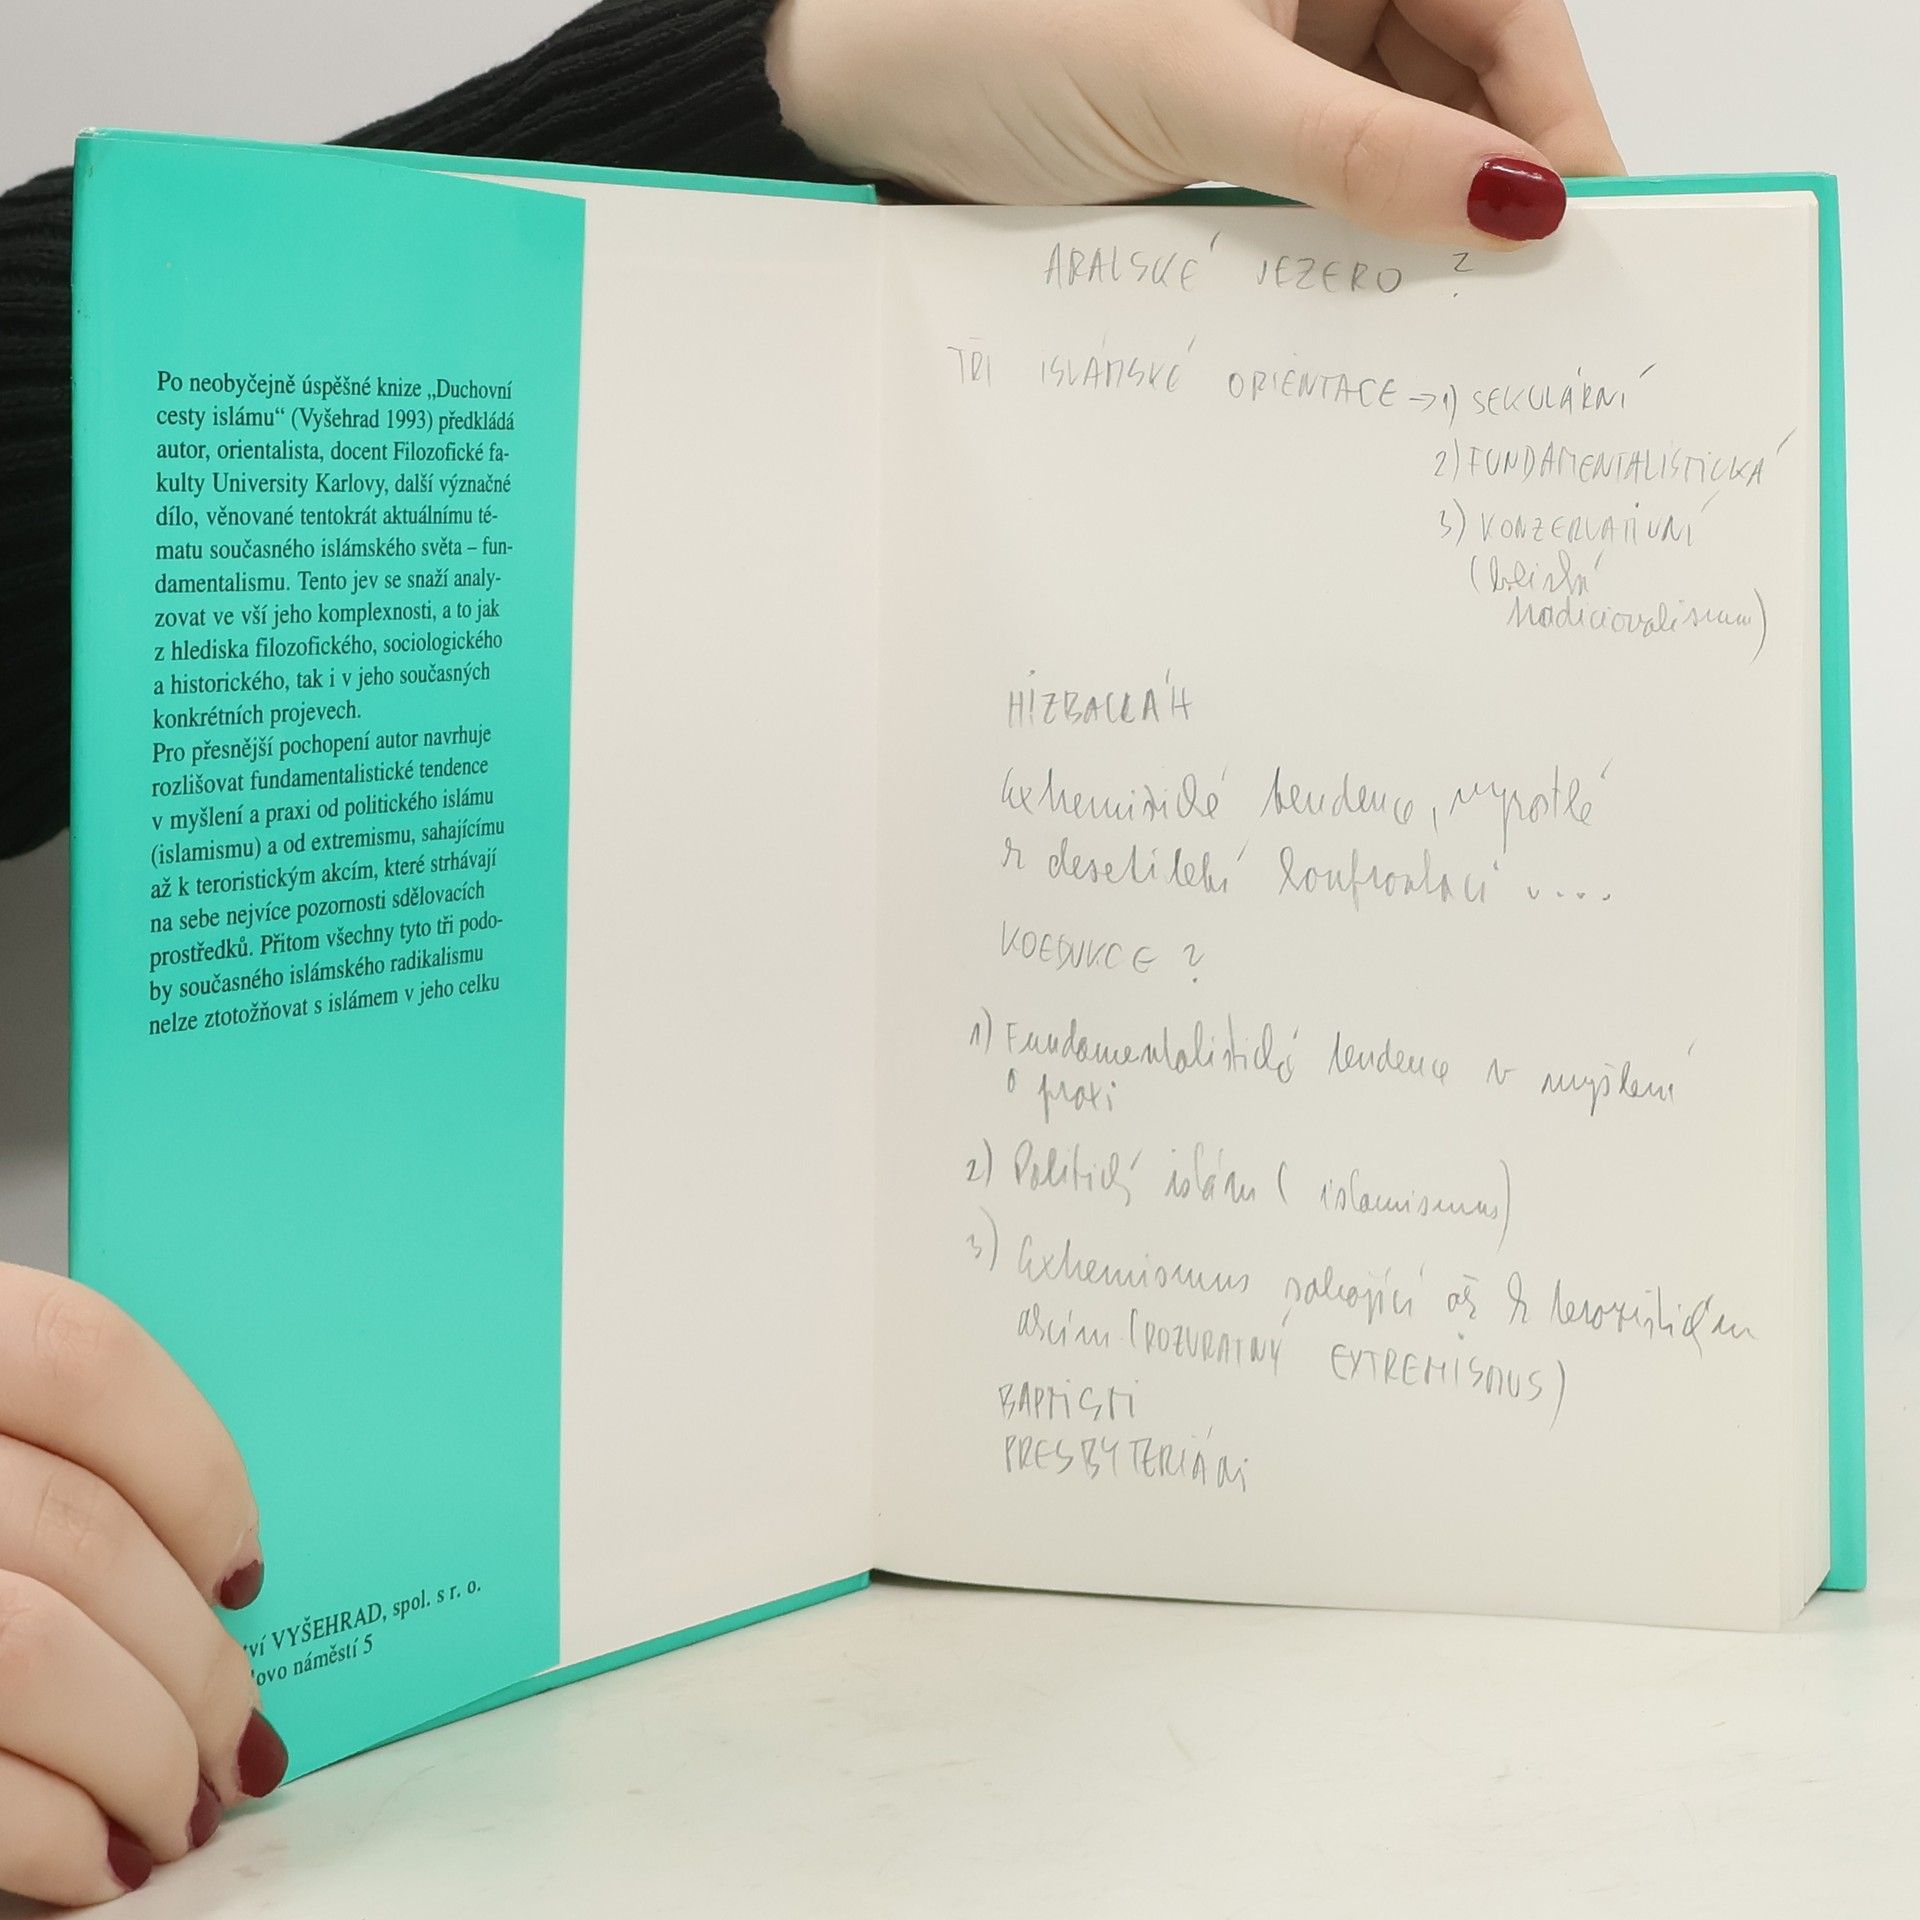 Po neobyčejně úspěšné knize „Duchovní
cesty islámu“ (Vyšehrad 1993) předkládá
autor, orientalista, docent Filozofické fa-
kulty University Karlovy, další význačné
dílo, věnované tentokrát aktuálnímu té-
matu současného islámského světa – fun-
damentalismu. Tento jev se snaží analy-
zovat ve vší jeho komplexnosti, a to jak
z hlediska filozofického, sociologického
a historického, tak i v jeho současných
konkrétních projevech.
Pro přesnější pochopení autor navrhuje
rozlišovat fundamentalistické tendence
v myšlení a praxi od politického islámu
(islamismu) a od extremismu, sahajícímu
až k teroristickým akcím, které strhávají
na sebe nejvíce pozornosti sdělovacích
prostředků. Přitom všechny tyto tři podo-
by současného islámského radikalismu
nelze ztotožňovat s islámem v jeho celku
ví VYŠEHRAD, spol. s r. o.
ovo náměstí 5
ARALSKÉ JEZERO ?
TŘI ISLÁMSKÉ ORIENTACE → 1) SEKULÁRNÍ
2) FUNDAMENTALISTICKÁ
3) KONZERVATIVNÍ
tradicionalismus)
HIZBALLÁH
Extremistické tendence, vyrostlé
z desetileté konfrontaci v....
KOEDUKCE ?
1) Fundamentalistické tendence v myšlení
a praxi
2) Politický islám ( islamismus)
3) Extremismus sahající až k teroristickým
akcím (ROZVRATNÝ EXTREMISMUS)
BAPTISTI
PRESBYTERIÁNI